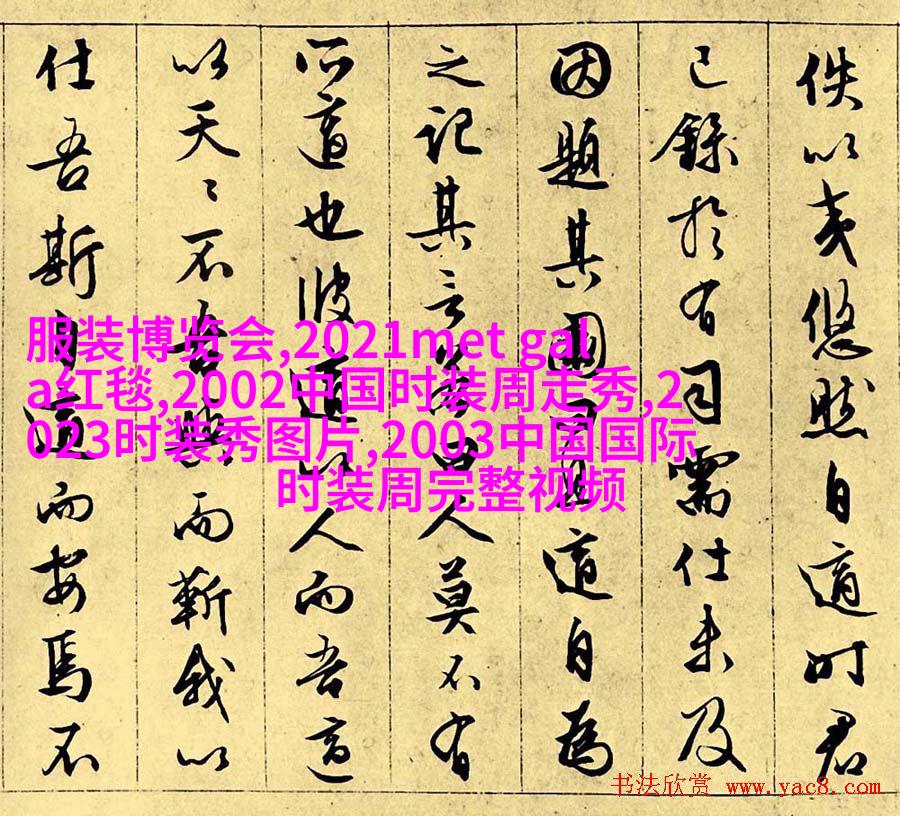 佚以夷悠然自適时君
已錄於有司需仕未及
因題其適自為
之記其言人莫不有
所適也彼適以人而吾適
以天〻不吾與而靳我以
仕吾斯自適而安焉不
服装博览会,2021met gal
a红毯,2002中国时装周走秀,2
023时装秀图片,2003中国国际
时装周完整视频
书法欣赏 www.yac8.com